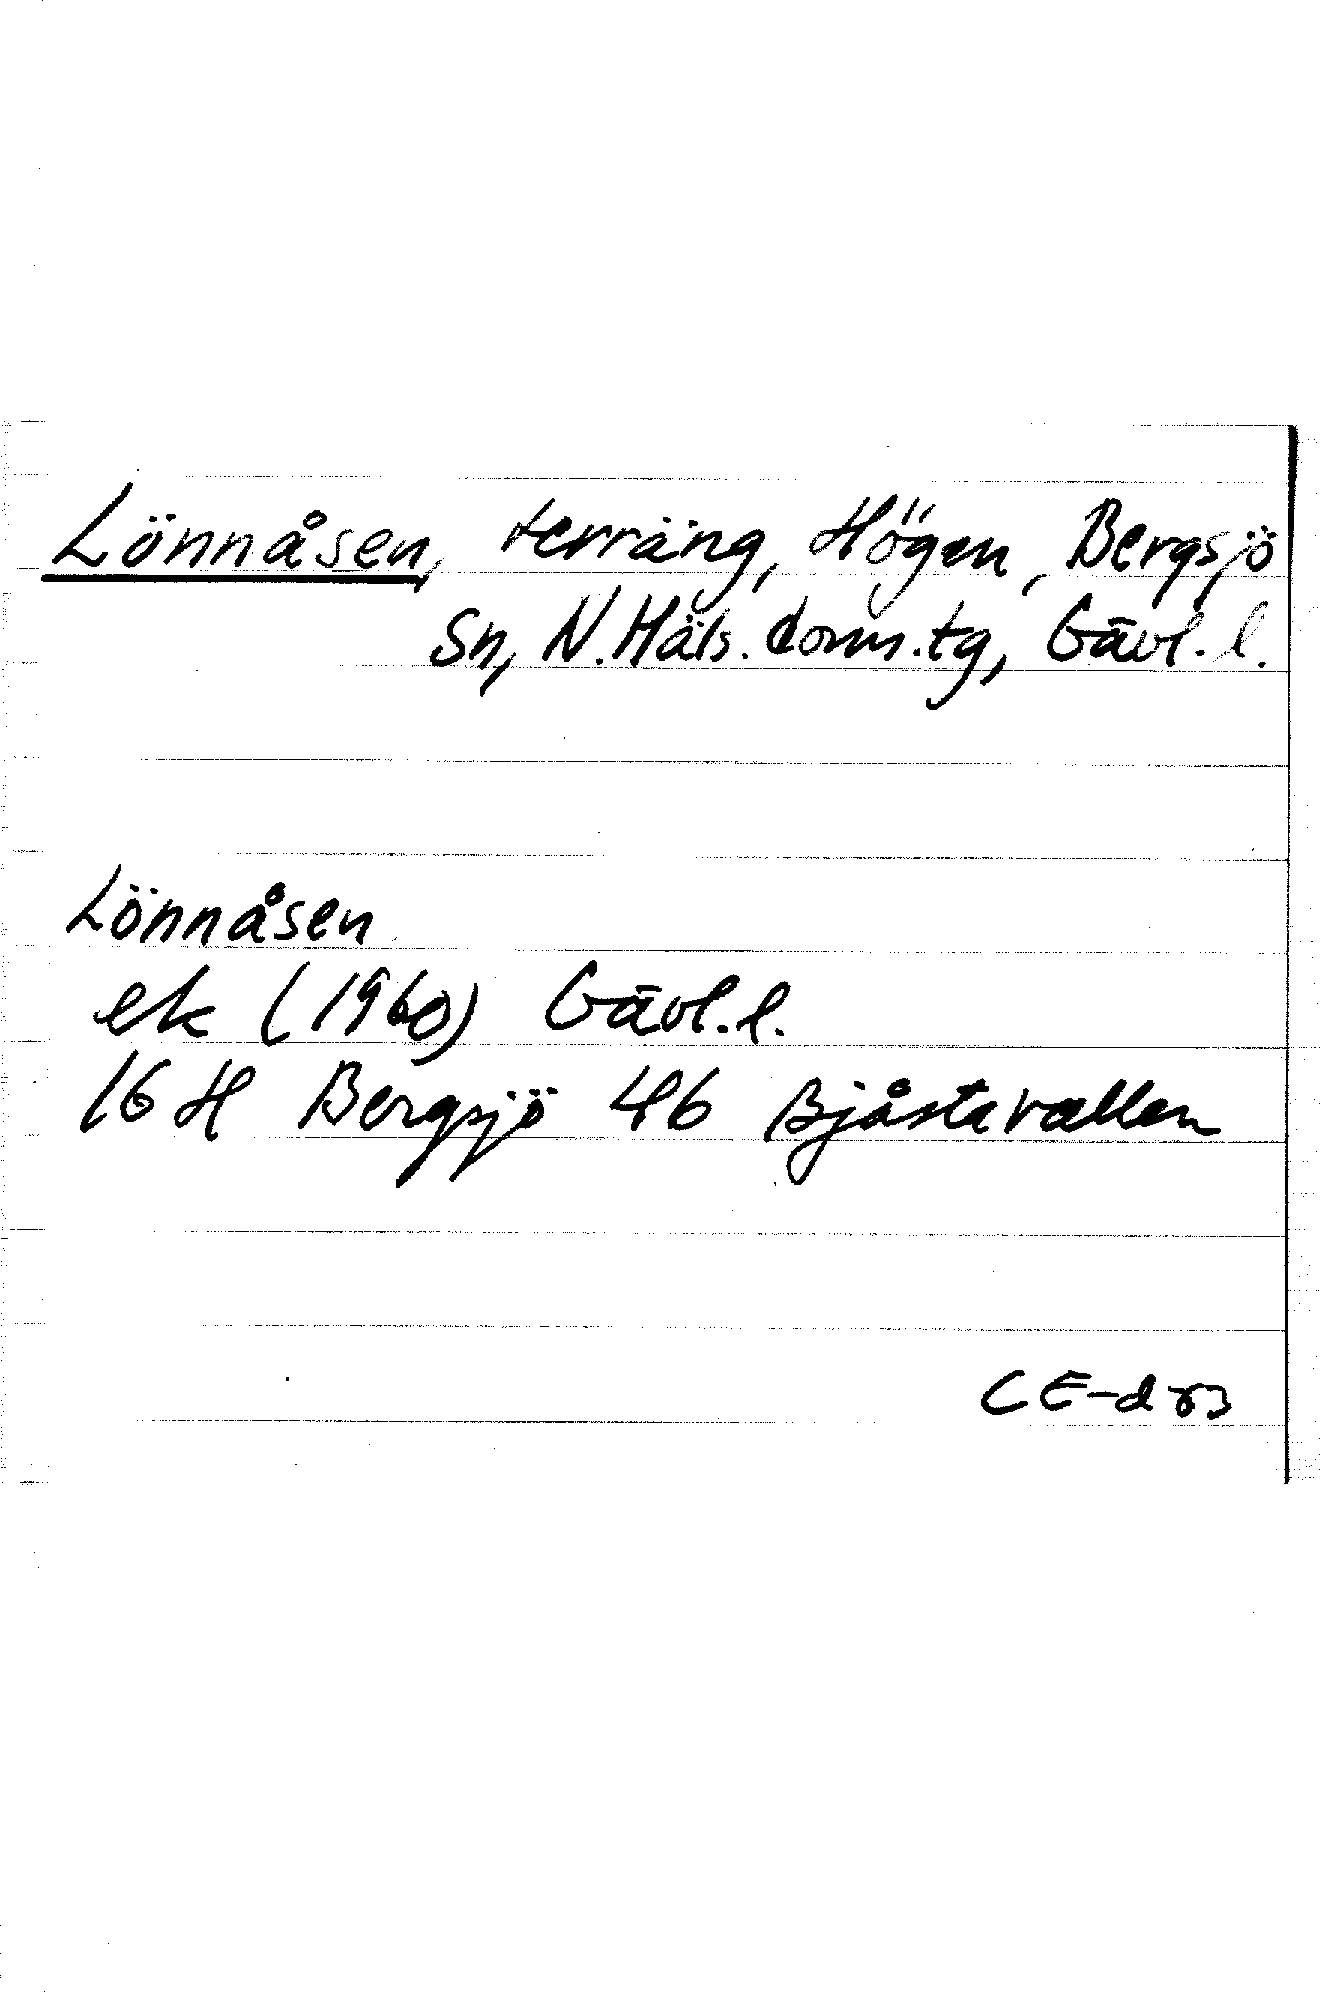 Lönnåsen, terräng, Högen, Bergsjö
Sn, N. Häls. doms.tg, Gävl. l.
Lönnåsen
ek (1960) Gävl. l.
16 H Bergsjö 4b Bjåstavallen